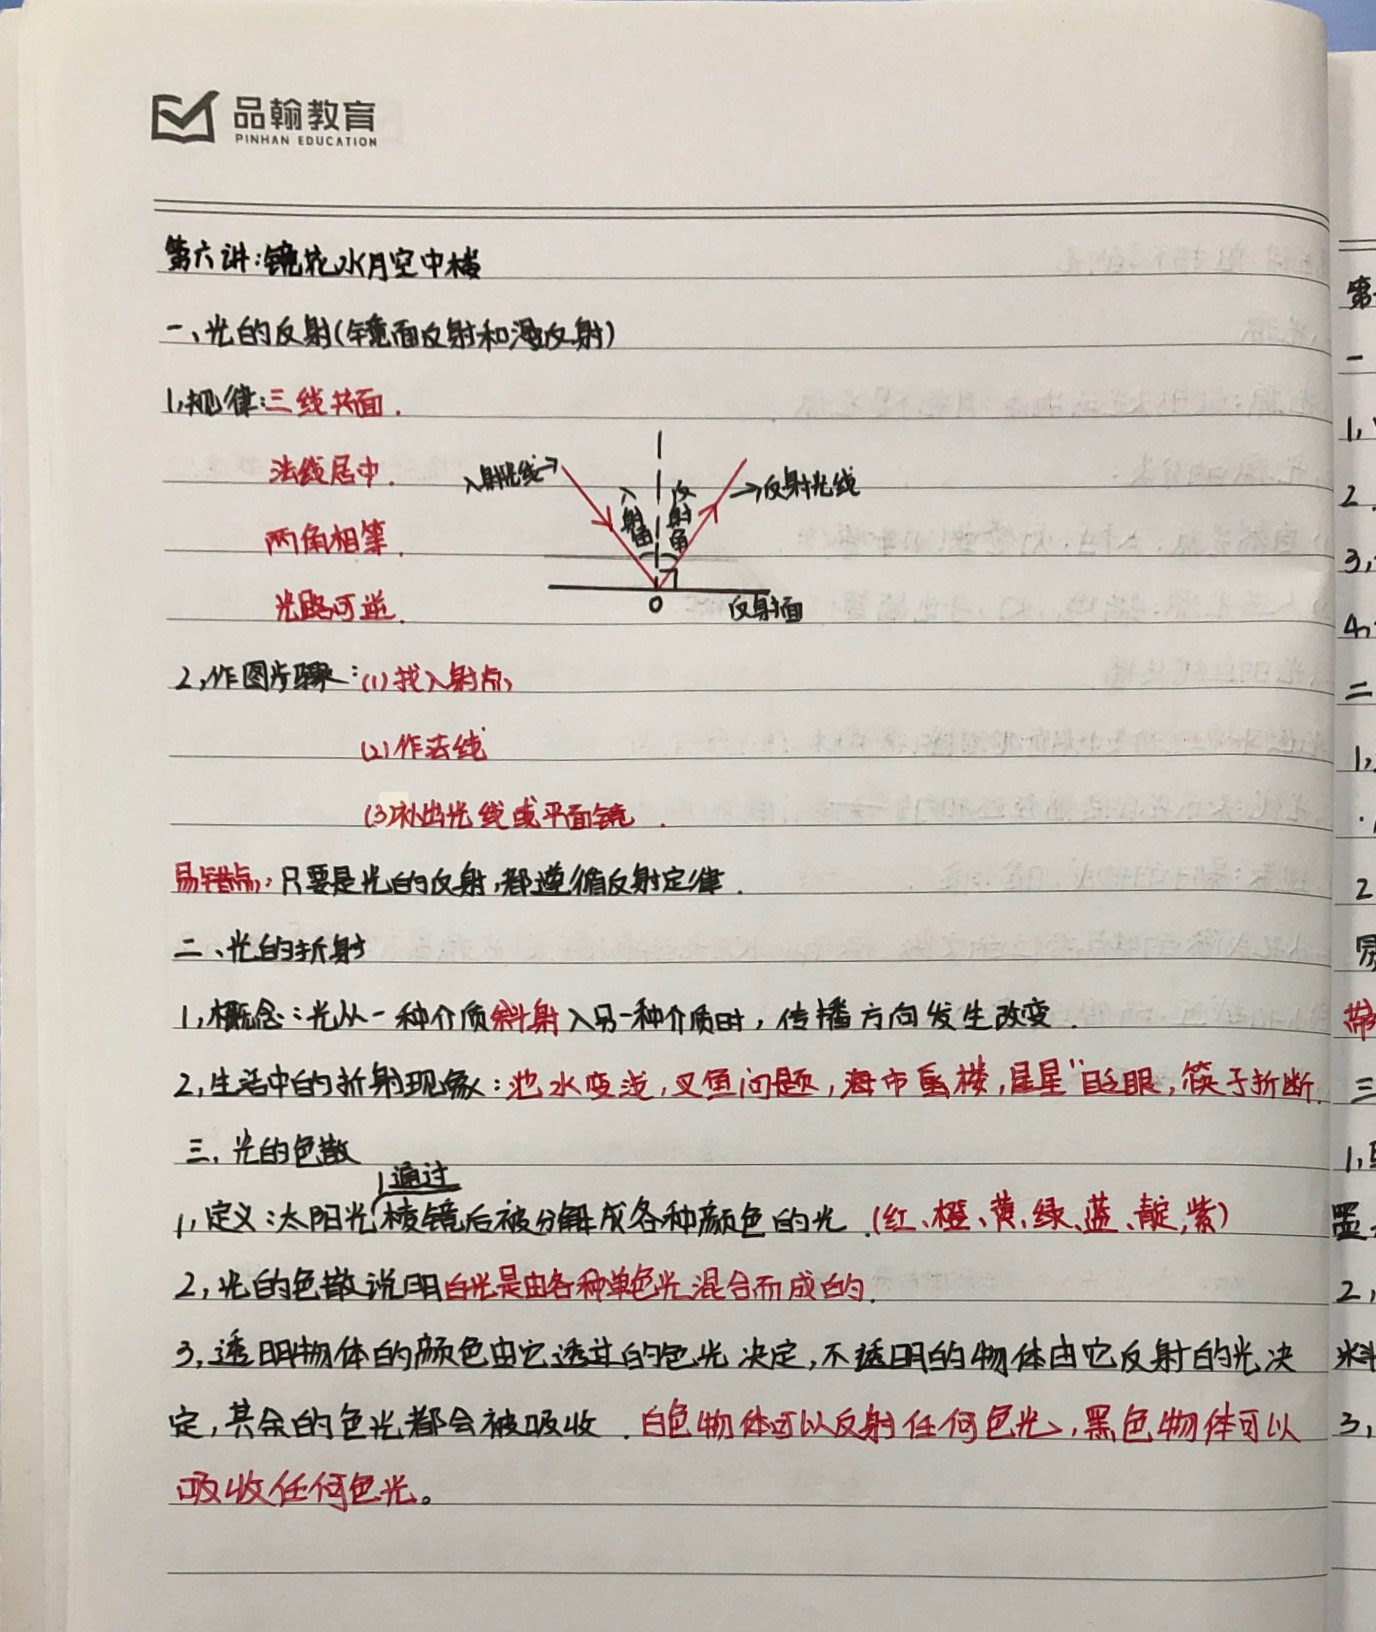 品翰教育
PINHAN EDUCATION
第六讲:镜花水月空中楼
一、光的反射(镜面反射和漫反射)
1,规律:三线共面.
法线居中.
两角相等.
光路可逆.
入射光线→
入射角
反射角
→反射光线
O
反射面
2,作图步骤:(1)找入射点,
(2)作法线
(3)补出光线或平面镜.
易错点:只要是光的反射,都遵循反射定律.
二、光的折射
1,概念:光从一种介质斜射入另一种介质时,传播方向发生改变.
2,生活中的折射现象:池水变浅,叉鱼问题,海市蜃楼,星星"眨眼,筷子折断.
三.光的色散
通过
1,定义:太阳光棱镜后被分解成各种颜色的光.(红、橙、黄、绿、蓝、靛,紫)
2,光的色散说明白光是由各种单色光混合而成的.
3,透明物体的颜色由它透过的色光决定,不透明的物体由它反射的光决
定,其余的色光都会被吸收.白色物体可以反射任何色光,黑色物体可以
吸收任何色光。
第
一
1,
2.
3,
4,
二
1,
2
带
三
1,
墨
2,
料
3,